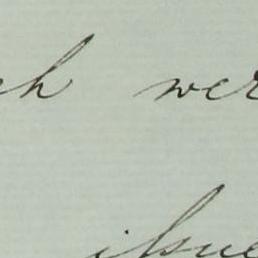 ch wer
issue